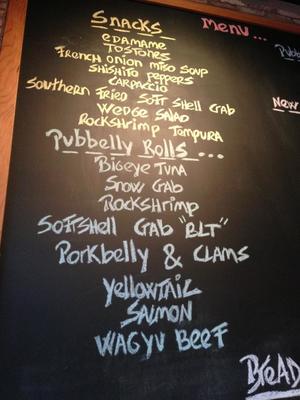 Snacks
Menu...
edamame
Tostones
French Onion Miso Soup
Shishito Peppers
Carpaccio
Southern Fried Soft Shell Crab
New
Wedge Salad
Rockshrimp Tempura
Pubbelly Rolls...
Bigeye Tuna
Snow Crab
Rockshrimp
Softshell Crab "BLT"
Porkbelly & Clams
Yellowtail
Salmon
Wagyu Beef
Bread